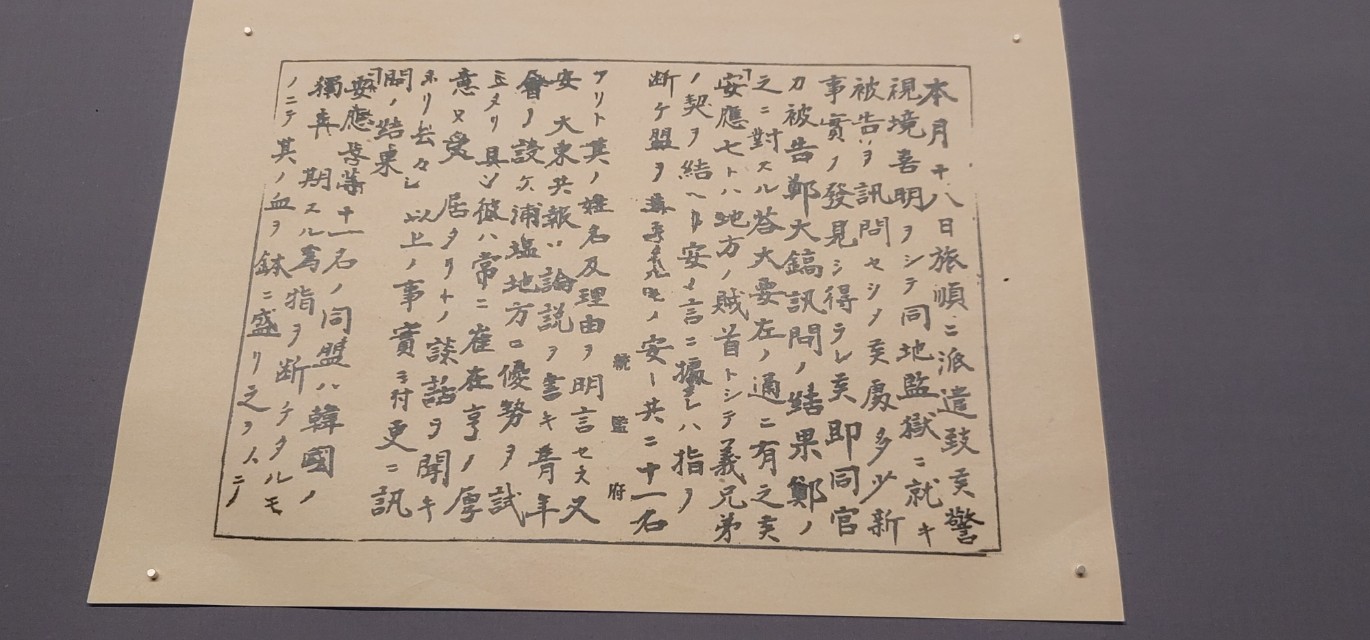 本月十八日旅順ニ派遣致候警
視境喜明ヲシテ同地監獄ニ就キ
被告ヲ訊問セシメ候處多少新
事實ノ發見シ得ラレ候即同官
カ被告鄭大鎬訊問ノ結果鄭ノ
之ニ對スル答大要左ノ通ニ有之候
「安應七トハ地方ノ賊首トシテ義兄弟
ノ契ヲ結ヘリ安ノ言ニ據レハ指ノ
断ケ盟ヲ ノ安ト共ニ十一名
統監府
アリト其ノ姓名及理由ヲ明言セス又
安 大東共報ニ論説ヲ書キ青年
會ノ設ケ浦塩地方ニ優勢ヲ試
ミタリ且ツ彼ハ常ニ崔在亨ノ厚
意ヌ受 居タリトノ談話ヲ聞キ
糸リ 云々」以上ノ事實ニ付更ニ訊
問ノ結果
「安應 等十一名ノ同盟ハ韓國ノ
獨 期スル為指ヲ断チタルモ
ノニテ其ノ血ヲ鉢ニ盛リ之ヲ